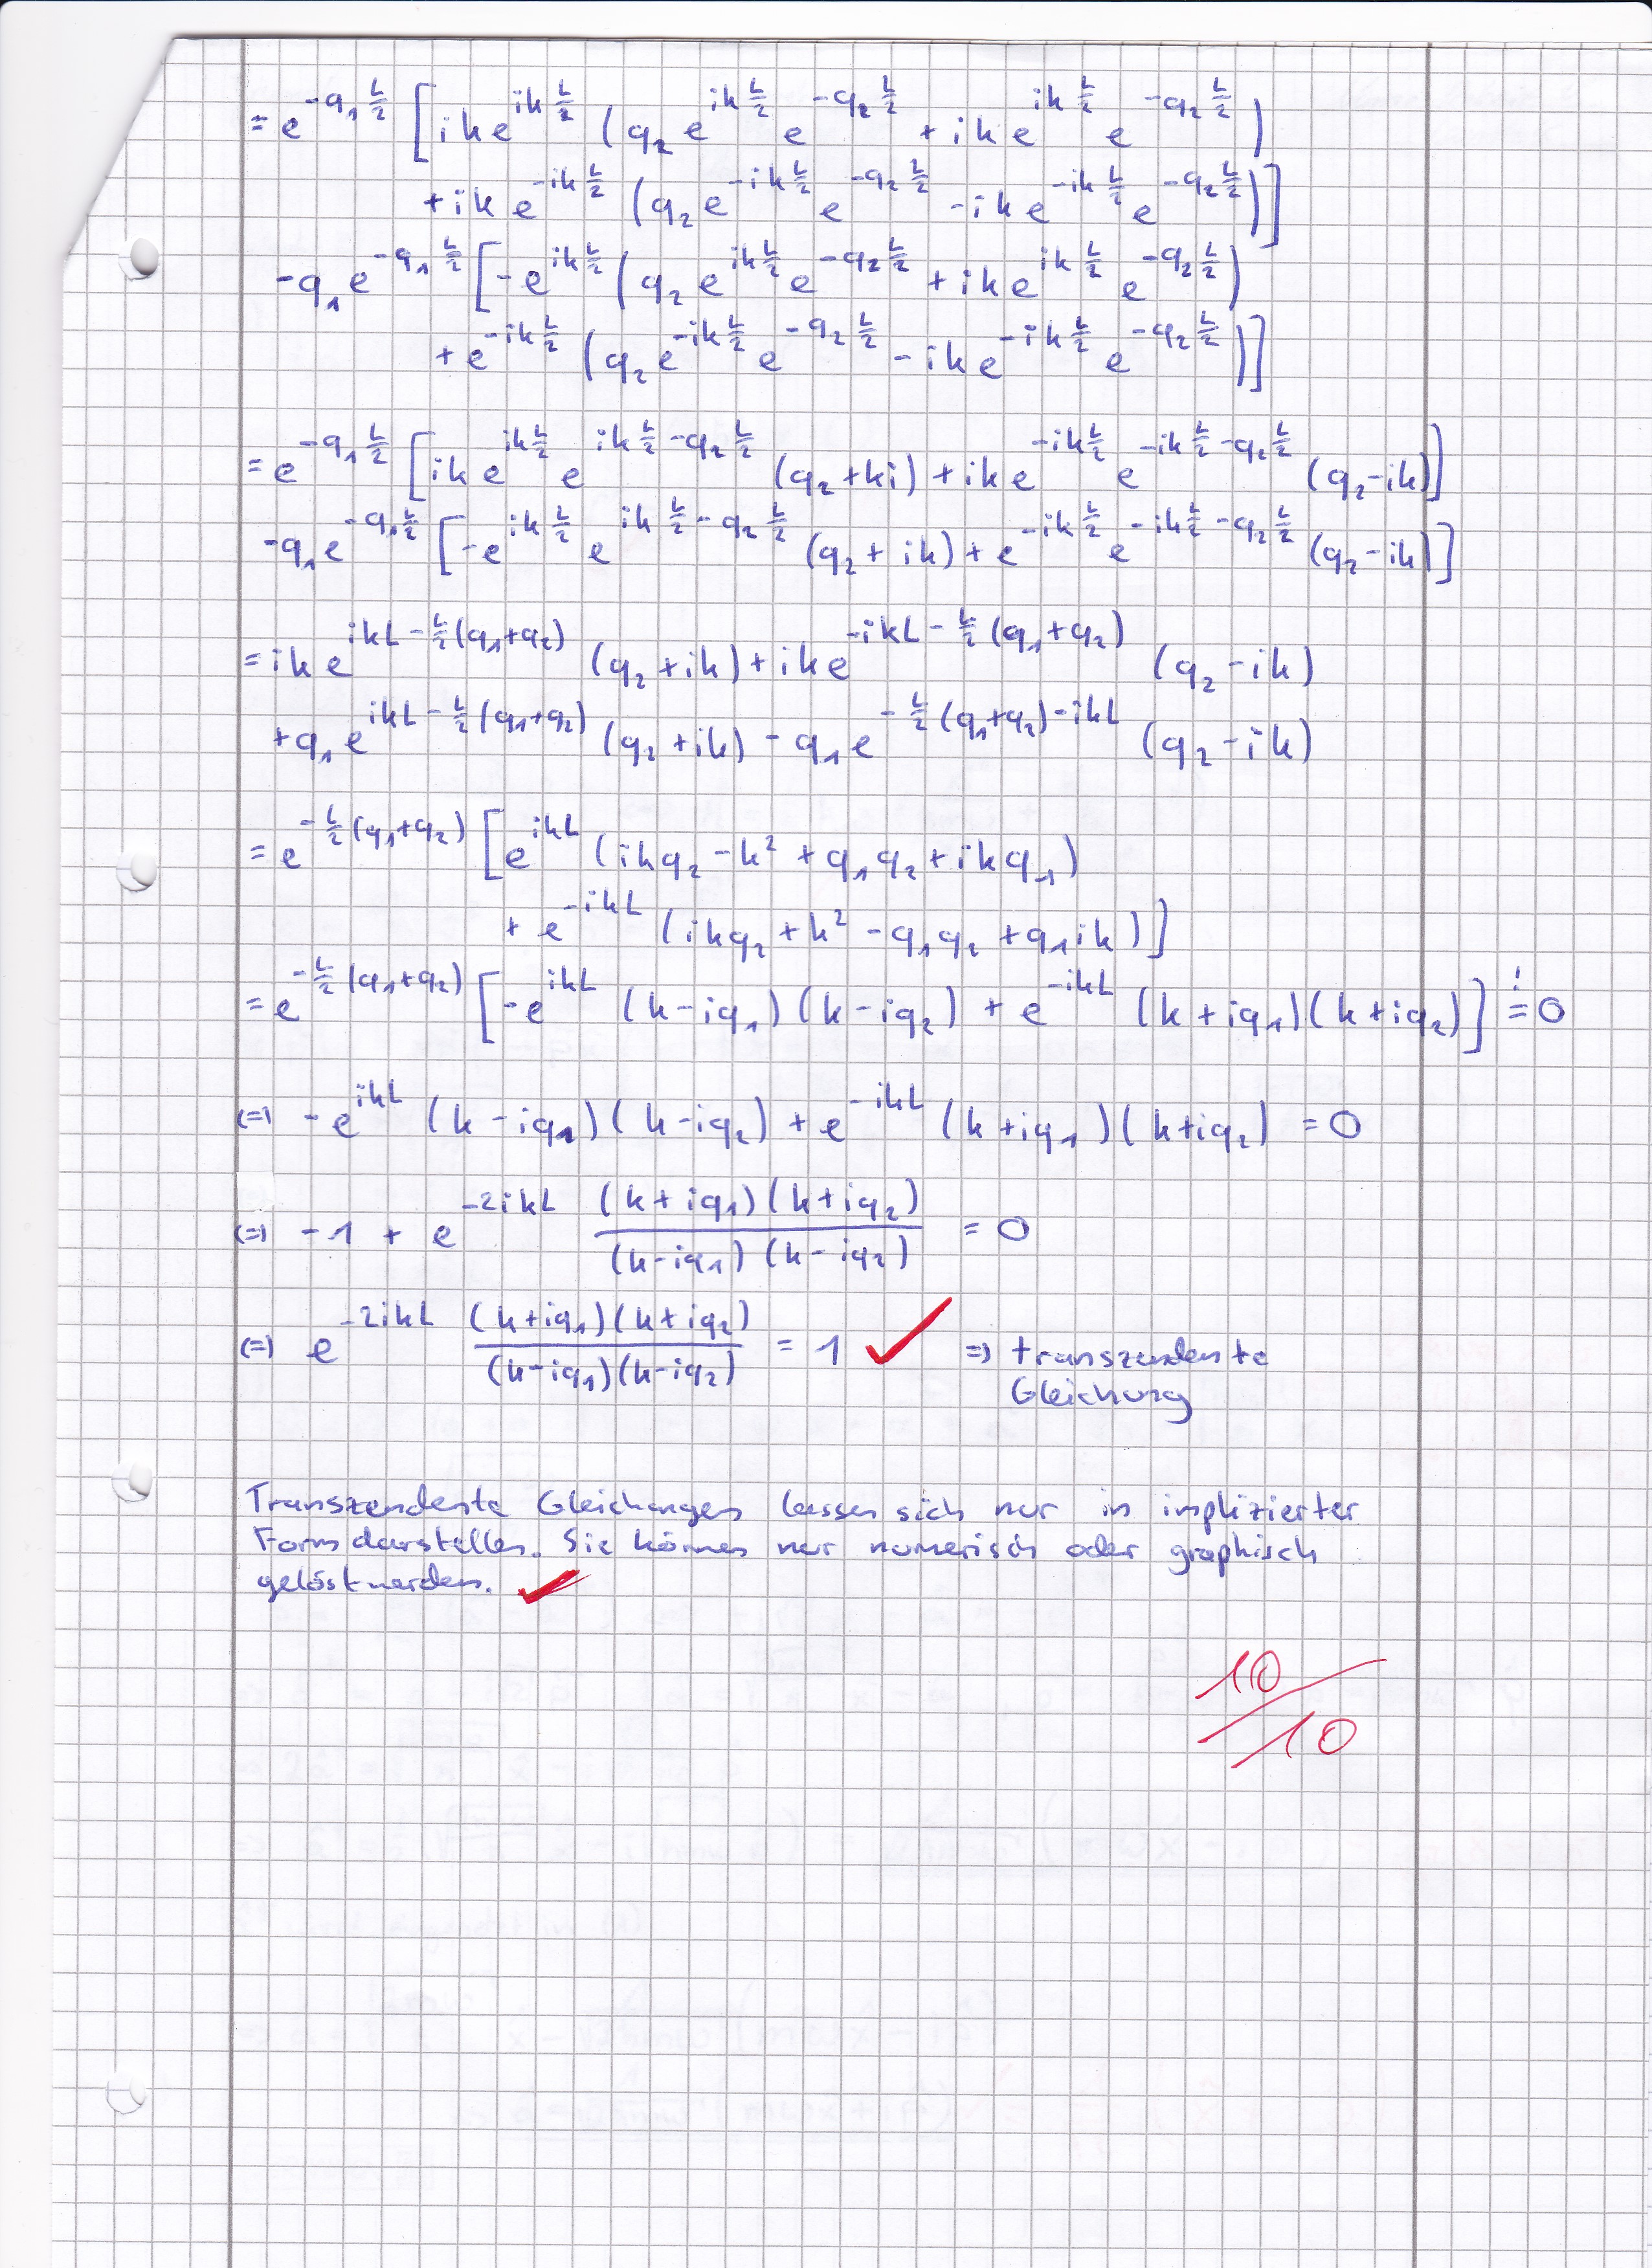 = e^{-q₁ L/2} [ ik e^{ik L/2} ( q₂ e^{ik L/2} e^{-q₂ L/2} + ik e^{ik L/2} e^{-q₂ L/2} )
+ ik e^{-ik L/2} ( q₂ e^{-ik L/2} e^{-q₂ L/2} - ik e^{-ik L/2} e^{-q₂ L/2} ) ]
- q₁ e^{-q₁ L/2} [ -e^{ik L/2} ( q₂ e^{ik L/2} e^{-q₂ L/2} + ik e^{ik L/2} e^{-q₂ L/2} )
+ e^{-ik L/2} ( q₂ e^{-ik L/2} e^{-q₂ L/2} - ik e^{-ik L/2} e^{-q₂ L/2} ) ]
= e^{-q₁ L/2} [ ik e^{ik L/2} e^{ik L/2 - q₂ L/2} (q₂ + ki) + ik e^{-ik L/2} e^{-ik L/2 - q₂ L/2} (q₂ - ik) ]
- q₁ e^{-q₁ L/2} [ -e^{ik L/2} e^{ik L/2 - q₂ L/2} (q₂ + ik) + e^{-ik L/2} e^{-ik L/2 - q₂ L/2} (q₂ - ik) ]
= ik e^{ikL - L/2 (q₁+q₂)} (q₂ + ik) + ik e^{-ikL - L/2 (q₁+q₂)} (q₂ - ik)
+ q₁ e^{ikL - L/2 (q₁+q₂)} (q₂ + ik) - q₁ e^{-L/2 (q₁+q₂) - ikL} (q₂ - ik)
= e^{-L/2 (q₁+q₂)} [ e^{ikL} ( ikq₂ - k² + q₁q₂ + ikq₁ )
+ e^{-ikL} ( ikq₂ + k² - q₁q₂ + q₁ik ) ]
= e^{-L/2 (q₁+q₂)} [ -e^{ikL} (k - iq₁)(k - iq₂) + e^{-ikL} (k + iq₁)(k + iq₂) ] =! 0
(=) - e^{ikL} (k - iq₁)(k - iq₂) + e^{-ikL} (k + iq₁)(k + iq₂) = 0
(=) -1 + e^{-2ikL} (k + iq₁)(k + iq₂) / (k - iq₁)(k - iq₂) = 0
(=) e^{-2ikL} (k + iq₁)(k + iq₂) / (k - iq₁)(k - iq₂) = 1 ✓ => transzendente
Gleichung
Transzendente Gleichungen lassen sich nur in implizierter
Form darstellen. Sie können nur numerisch oder graphisch
gelöst werden. ✓
10/10